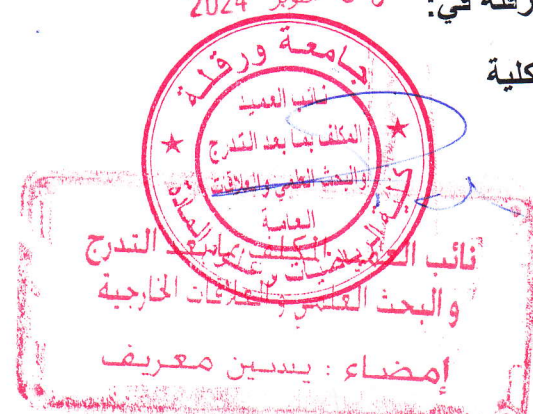 رقلة في:
أكتوبر 2024
كلية
جامعة ورقلة
نائب العميد
المكلف بما بعد التدرج
والبحث العلمي والعلاقات
العامة
كلية الرياضيات وعلوم المادة
نائب العميد المكلف بما بعد التدرج
و البحث العلمي و العلاقات الخارجية
إمضاء : يسين معريف